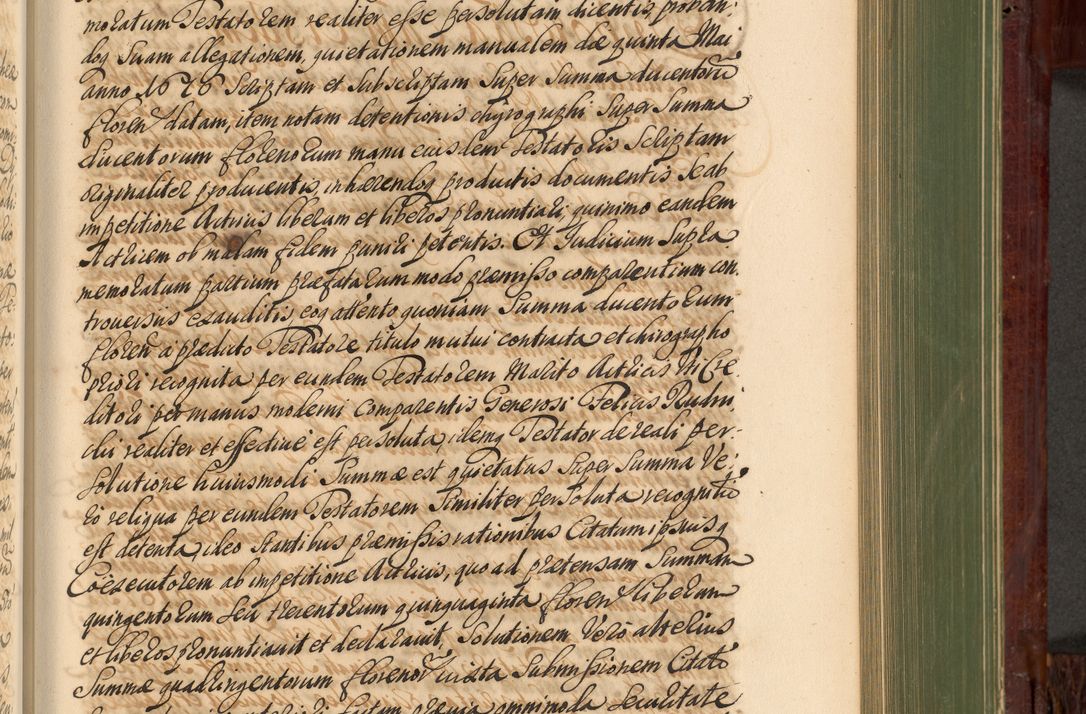 moratum Testatorem realiter esse persolutam dicentis, proban:
doq suam allegationem, quietationem manualem die quinta Mai
anno 1676 Scriptam et subscriptam super summa ducentorũ
floren datam, item notam detentionis chyrographi super summa
ducentorum florenorum manu eiusdem Testatoris Scriptam
originaliter producentis, inhærendoq productis documentis se ab
impetitione Actricis liberum et liberos pronuntiari, quinimo eandem
Actricem ob malam fidem puniri petentis. Et Judicium Supra
memoratum partium præfatarum modo præmisso comparentium con
troversiis exauditis eoq attento quoniam Summa ducentorum
floren a prædicto Testatore titulo mutui contracta et chirographo
priori recognita per eundem Testatorem Marito Actricis Vti Cre
ditori per manus moderni comparentis Generosi Felicis Rudni
cki realiter et effective est persoluta, idemq Testator de reali per
solutione huiusmodi Summæ est quietatus super summa Ve
ro reliqua per eundem Testatorem similiter persoluta recognitio
est detenta, ideo stantibus præmissis rationibus Citatum ipsiusq
Coexecutorem ab impetitione Actricis, quoad prætensam Summam
quingentorum seu trecentorum quinquaginta floren liberum
et liberos pronuntiavit et declaravit, Solutionem Vero alterius
Summæ quadringentorum florenor iuxta Submissionem Citati
omnimoda securitate